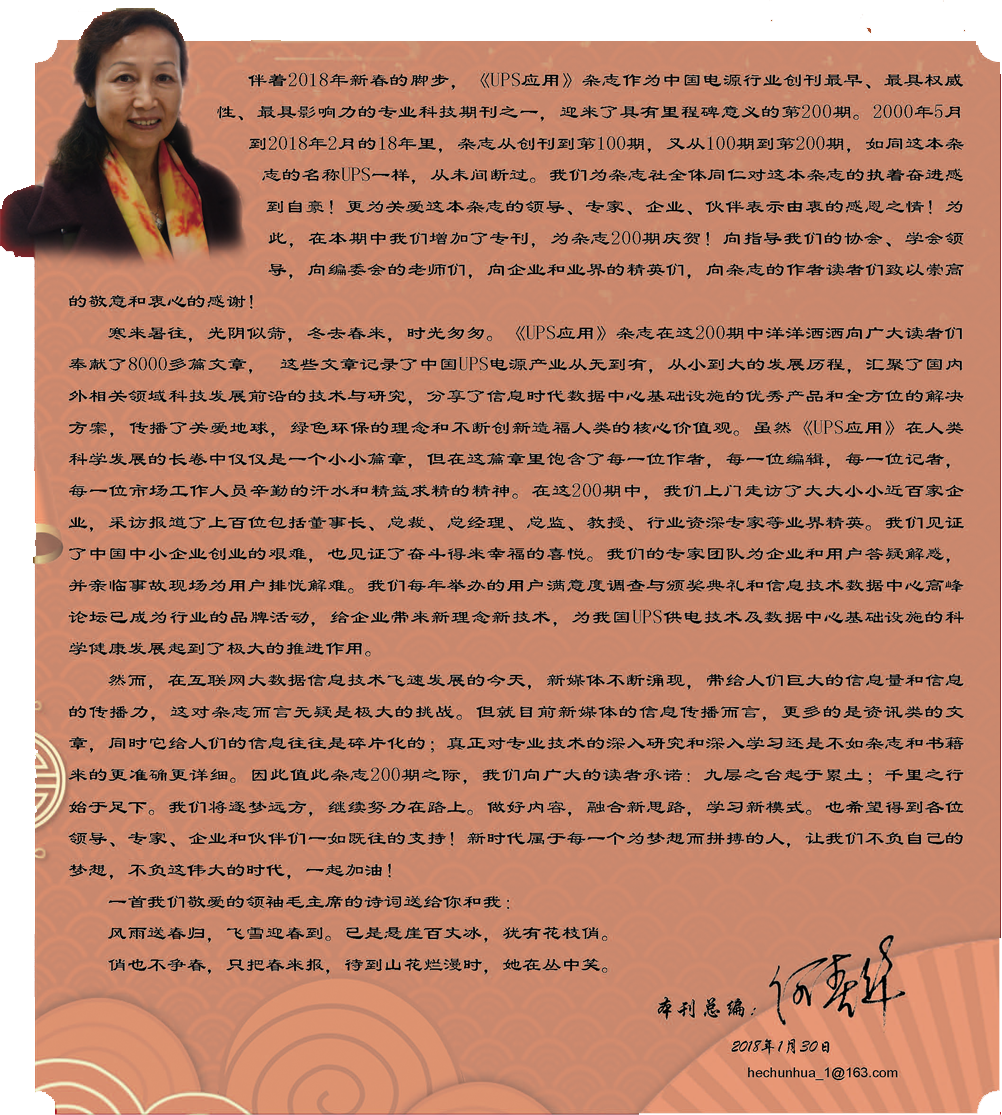 伴着2018年新春的脚步，《UPS应用》杂志作为中国电源行业创刊最早、最具权威
性、最具影响力的专业科技期刊之一，迎来了具有里程碑意义的第200期。2000年5月
到2018年2月的18年里，杂志从创刊到第100期，又从100期到第200期，如同这本杂
志的名称UPS一样，从未间断过。我们为杂志社全体同仁对这本杂志的执着奋进感
到自豪！更为关爱这本杂志的领导、专家、企业、伙伴表示由衷的感恩之情！为
此，在本期中我们增加了专刊，为杂志200期庆贺！向指导我们的协会、学会领
导，向编委会的老师们，向企业和业界的精英们，向杂志的作者读者们致以崇高
的敬意和衷心的感谢！
寒来暑往，光阴似箭，冬去春来，时光匆匆。《UPS应用》杂志在这200期中洋洋洒洒向广大读者们
奉献了8000多篇文章， 这些文章记录了中国UPS电源产业从无到有，从小到大的发展历程，汇聚了国内
外相关领域科技发展前沿的技术与研究，分享了信息时代数据中心基础设施的优秀产品和全方位的解决
方案，传播了关爱地球，绿色环保的理念和不断创新造福人类的核心价值观。虽然《UPS应用》在人类
科学发展的长卷中仅仅是一个小小篇章，但在这篇章里饱含了每一位作者，每一位编辑，每一位记者，
每一位市场工作人员辛勤的汗水和精益求精的精神。在这200期中，我们上门走访了大大小小近百家企
业，采访报道了上百位包括董事长、总裁、总经理、总监、教授、行业资深专家等业界精英。我们见证
了中国中小企业创业的艰难，也见证了奋斗得来幸福的喜悦。我们的专家团队为企业和用户答疑解惑，
并亲临事故现场为用户排忧解难。我们每年举办的用户满意度调查与颁奖典礼和信息技术数据中心高峰
论坛已成为行业的品牌活动，给企业带来新理念新技术，为我国UPS供电技术及数据中心基础设施的科
学健康发展起到了极大的推进作用。
然而，在互联网大数据信息技术飞速发展的今天，新媒体不断涌现，带给人们巨大的信息量和信息
的传播力，这对杂志而言无疑是极大的挑战。但就目前新媒体的信息传播而言，更多的是资讯类的文
章，同时它给人们的信息往往是碎片化的；真正对专业技术的深入研究和深入学习还是不如杂志和书籍
来的更准确更详细。因此值此杂志200期之际，我们向广大的读者承诺：九层之台起于累土；千里之行
始于足下。我们将逐梦远方，继续努力在路上。做好内容，融合新思路，学习新模式。也希望得到各位
领导、专家、企业和伙伴们一如既往的支持！新时代属于每一个为梦想而拼搏的人，让我们不负自己的
梦想，不负这伟大的时代，一起加油！
一首我们敬爱的领袖毛主席的诗词送给你和我：
风雨送春归，飞雪迎春到。已是悬崖百丈冰，犹有花枝俏。
俏也不争春，只把春来报，待到山花烂漫时，她在丛中笑。
本刊总编：何春华
2018年1月30日
hechunhua_1@163.com